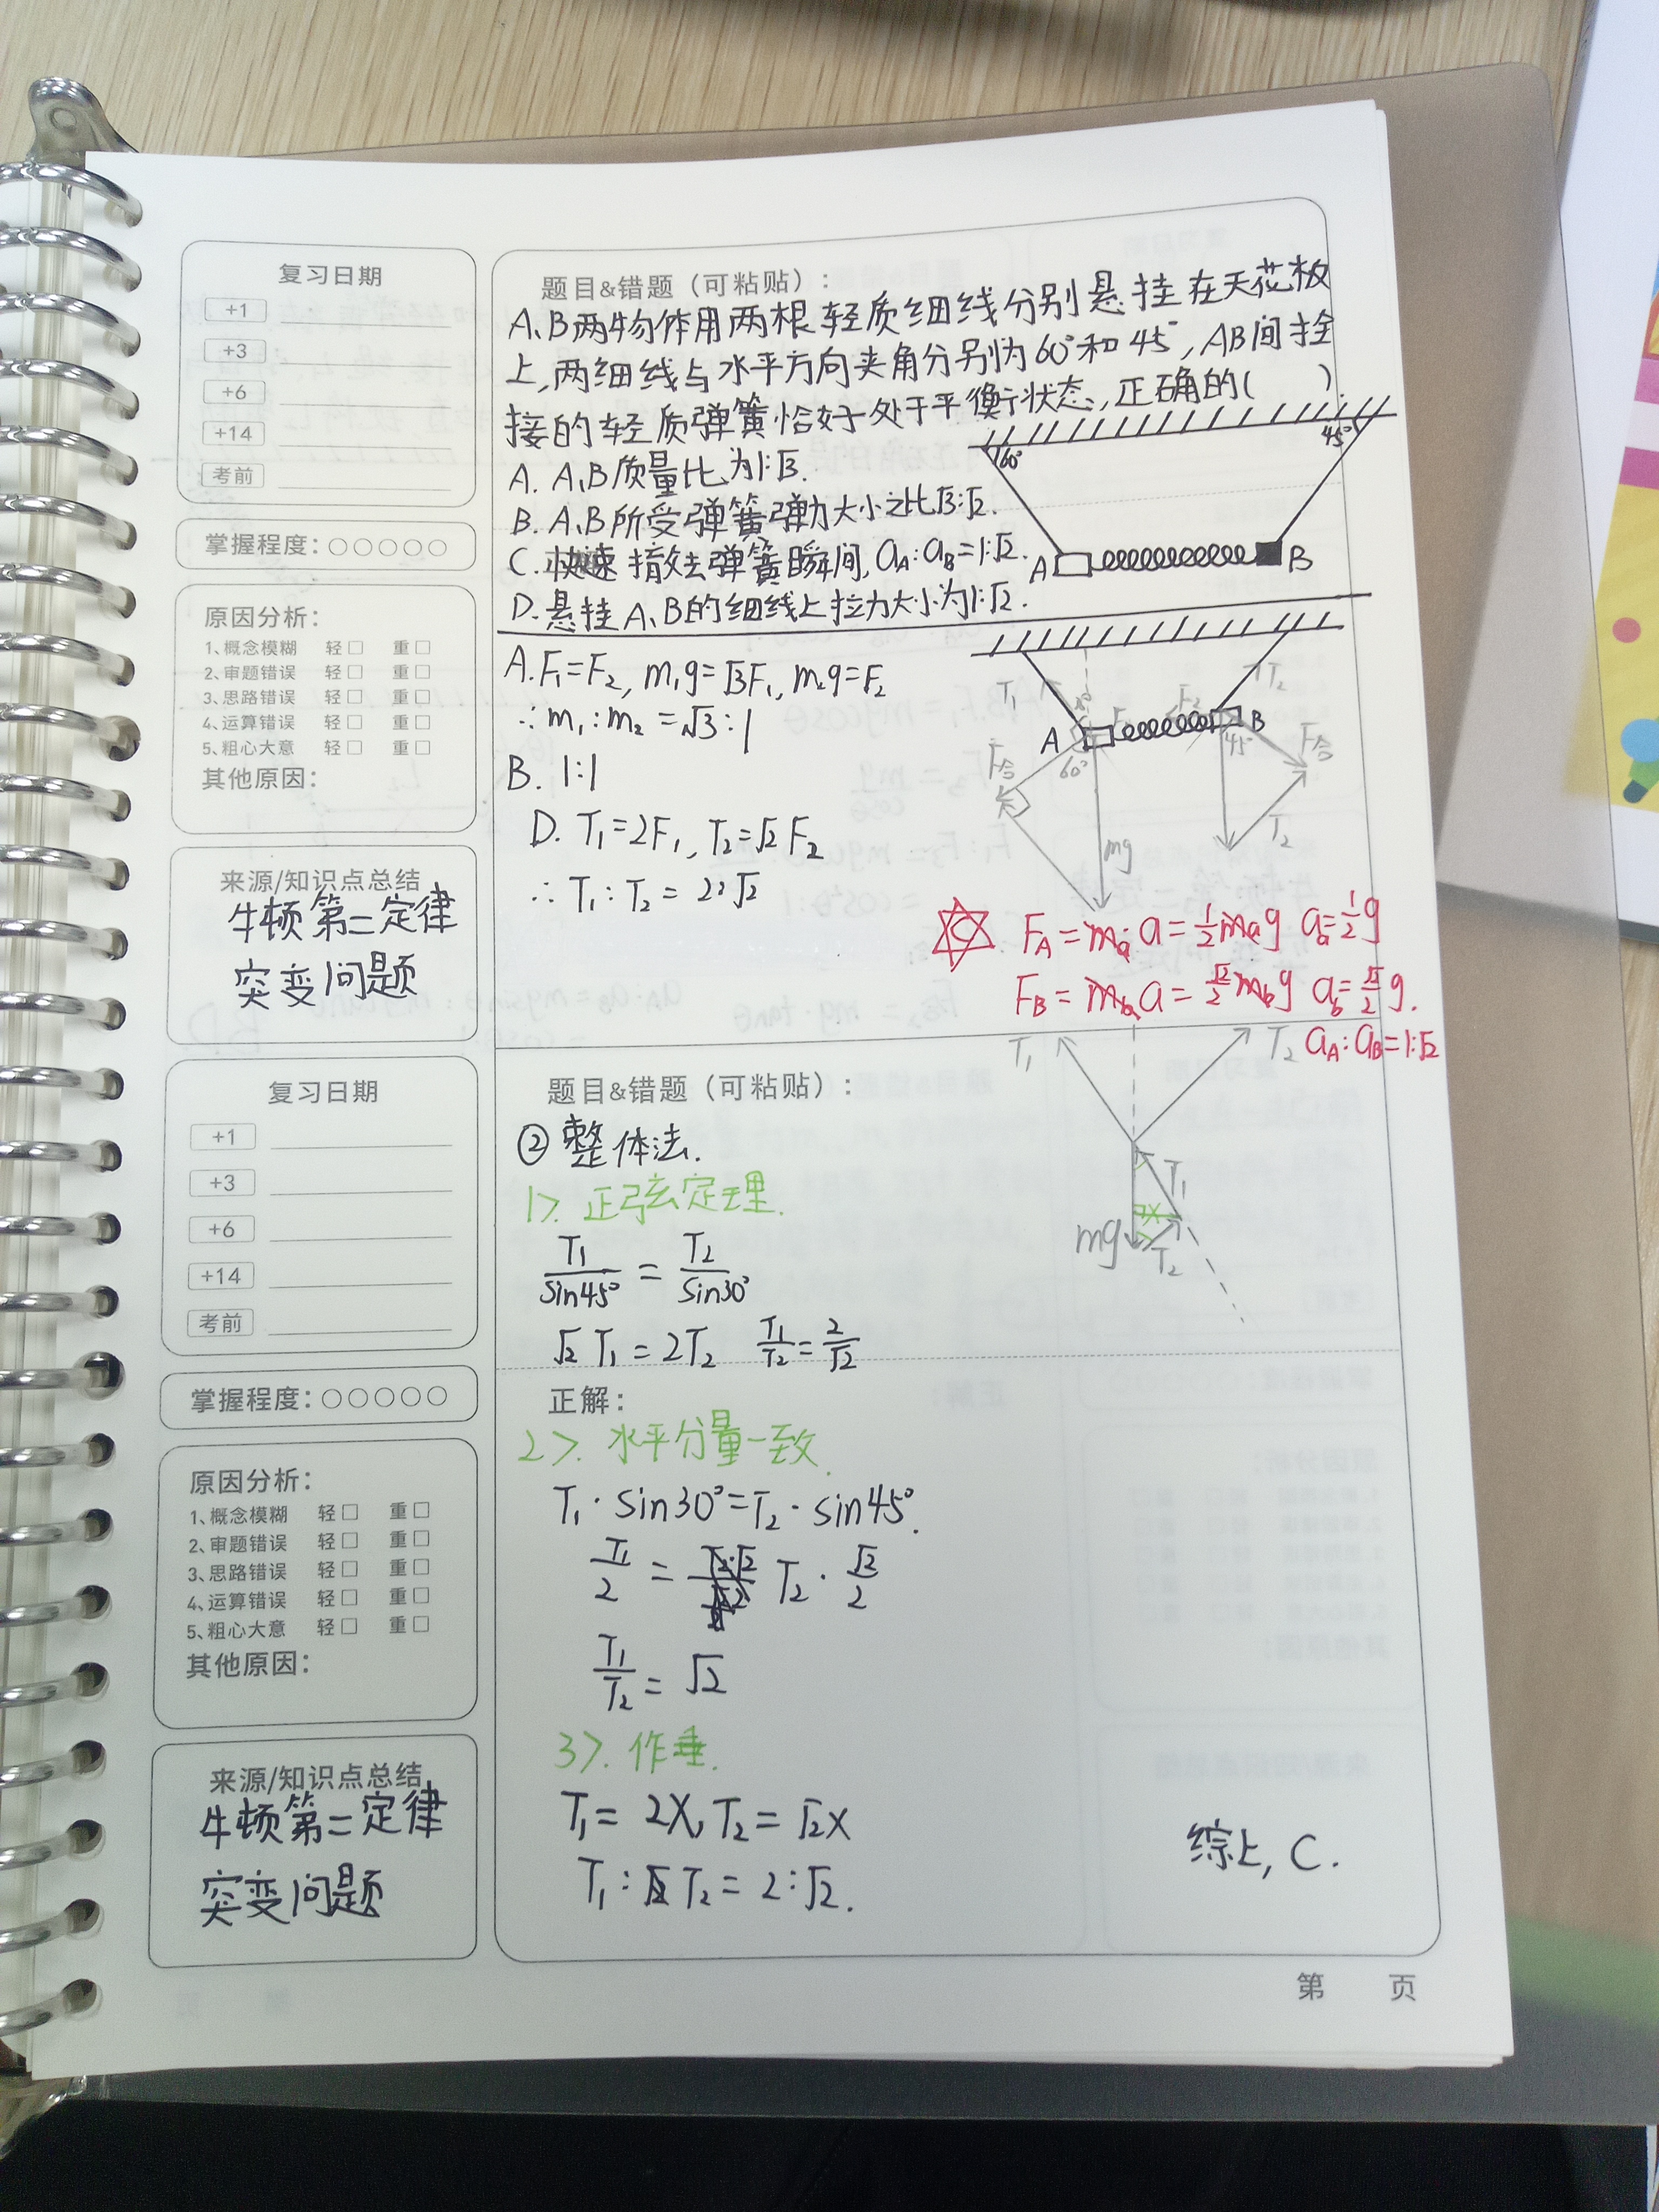 复习日期
+1
+3
+6
+14
考前
掌握程度：○○○○○
原因分析：
1、概念模糊 轻□ 重□
2、审题错误 轻□ 重□
3、思路错误 轻□ 重□
4、运算错误 轻□ 重□
5、粗心大意 轻□ 重□
其他原因：
来源/知识点总结
牛顿第二定律
突变问题
题目&错题（可粘贴）：
A、B两物体用两根轻质细线分别悬挂在天花板
上,两细线与水平方向夹角分别为60°和45°,AB间拴
接的轻质弹簧恰好处于平衡状态,正确的( )
A. A、B质量比为1:√3.
B. A、B所受弹簧弹力大小之比√3:√2.
C. 快速撤去弹簧瞬间, aA:aB=1:√2.
D. 悬挂A、B的细线上拉力大小为1:√2.
60° 45°
A B
A. F₁=F₂, m₁g=√3F₁, m₂g=F₂
∴m₁:m₂=√3:1
B. 1:1
D. T₁=2F₁, T₂=√2F₂
∴T₁:T₂=2:√2
T₁ T₂
A B
F合 60° 45° F合
T₂
mg
C FA=mₐa=½mₐg aₐ=½g
FB=m_b a=√2/2 m_b g a_b=√2/2 g.
aA:aB=1:√2
复习日期
+1
+3
+6
+14
考前
掌握程度：○○○○○
原因分析：
1、概念模糊 轻□ 重□
2、审题错误 轻□ 重□
3、思路错误 轻□ 重□
4、运算错误 轻□ 重□
5、粗心大意 轻□ 重□
其他原因：
来源/知识点总结
牛顿第二定律
突变问题
题目&错题（可粘贴）：
②整体法.
1>. 正弦定理.
T₁/sin45°=T₂/sin30°
√2T₁=2T₂ T₁/T₂=2/√2
T₁ T₂
T₁
x
mg T₂
正解：
2>. 水平分量一致.
T₁·sin30°=T₂·sin45°.
T₁/2=T₂·√2/2
T₁/T₂=√2
3>. 作垂.
T₁=2x, T₂=√2x
T₁:T₂=2:√2.
综上, C.
第 页